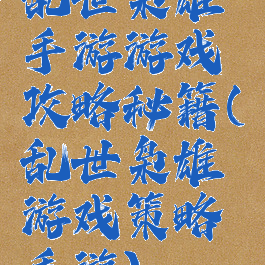 乱世枭雄
手游游戏
攻略秘籍(
乱世枭雄
游戏策略
手游)